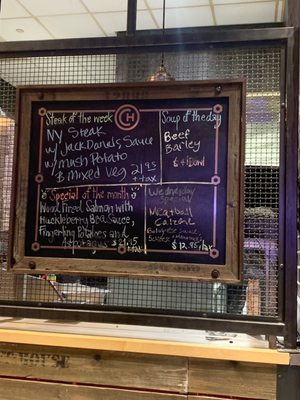 Steak of the week
CH
NY Steak
w/ Jack Daniels Sauce
w/ Mash Potato
& Mixed Veg 21.95
+ tax
Soup of the day
Beef
Barley
Special of the month
Wood Fired Salmon with
Huckleberry BBQ Sauce,
Fingerling Potatoes and
Asparagus $21.15
Wednesday
Special
Meatball
Calzone
$12.95/tax
HOUSE